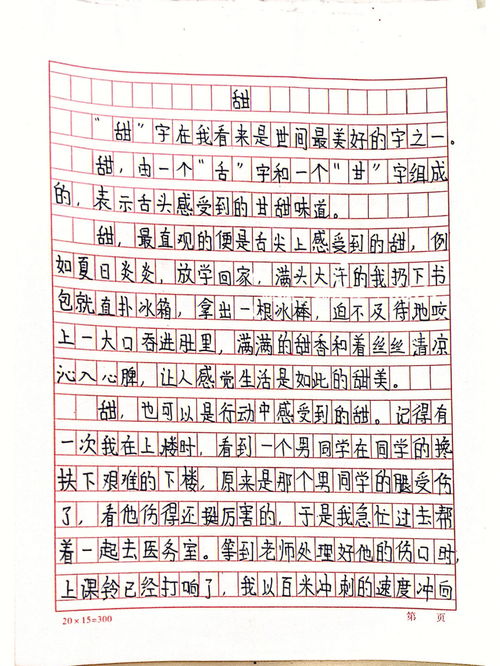 甜
“甜”字在我看来是世间最美好的字之一。
甜，由一个“舌”字和一个“甘”字组成
的，表示舌头感受到的甘甜味道。
甜，最直观的便是舌尖上感受到的甜，例
如夏日炎炎，放学回家，满头大汗的我扔下书
包就直扑冰箱，拿出一根冰棒，迫不及待地咬
上一大口吞进肚里，满满的甜香和着丝丝清凉
沁入心脾，让人感觉生活是如此的甜美。
甜，也可以是行动中感受到的甜。记得有
一次我在上楼时，看到一个男同学在同学的搀
扶下艰难的下楼，原来是那个男同学的腿受伤
了，看他伤得还挺厉害的，于是我急忙过去帮
着一起去医务室。等到老师处理好他的伤口时，
上课铃已经打响了，我以百米冲刺的速度冲向
20×15=300 第 页